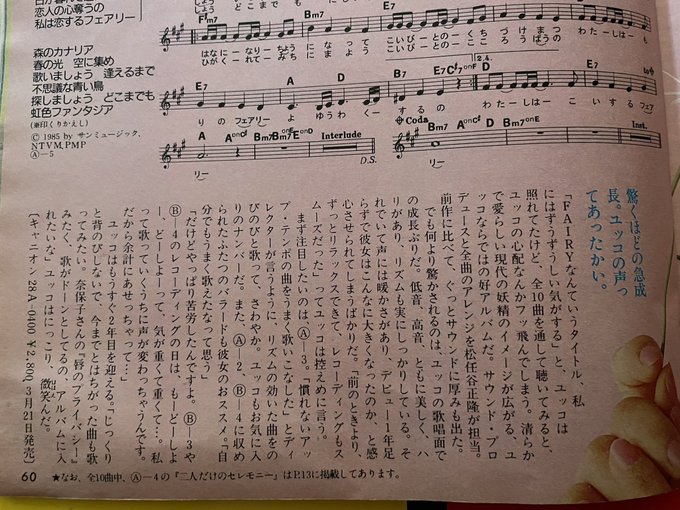 恋人の心奪うの
私は恋するフェアリー
森のカナリア
春の光 空に集め
歌いましょう 逢えるまで
不思議な青い鳥
探しましょう どこまでも
虹色ファンタジア
(※印くりかえし)
© 1985 by サンミュージック,
NTVM,PMP
Ⓐ—5
F#m7 Bm7 E7 A
はなにーなりーちょうになって こいびーとのーくちづけまつ わたーしはーも
ひがくーれてーも こいびーとのーこころうばうの
A D B7 E7 C#7onF D to⊕
りのフェアリーよゆうわくーするの わたーしはーこいするフェア
A AonC# Bm7 Bm7onE Interlude D.S.
リー
⊕Coda Bm7 A AonC# D Bm7onE Inst.
リー
驚くほどの急成
長。ユッコの声っ
てあったかい。
「FAIRYなんていうタイトル、私
にはずうずうしい気がする」と、ユッコは
照れてたけど、全10曲を通して聴いてみると、
ユッコの心配なんかフッ飛んでしまう。清らか
で愛らしい現代の妖精のイメージが広がる、ユ
ッコならではの好アルバムだ。サウンド・プロ
デュースと全曲のアレンジを松任谷正隆が担当。
前作に比べて、ぐっとサウンドに厚みも出た。
でも何より驚かされるのは、ユッコの歌唱面で
の成長ぶりだ。低音、高音、ともに美しく、ハ
リがあり、リズムも実にしっかりしている。そ
れでいて声には暖かさがあり、デビュー1年足
らずで彼女はこんなに大きくなったのか、と感
心させられてしまうばかりだ。「前のときより、
ずっとリラックスできて、レコーディングもス
ムーズだった」ってユッコは控えめに言う。
まず注目したいのはⒶ—3。慣れないアッ
プ・テンポの曲をうまく歌いこなした」とディ
レクターが言うように、リズムの効いた曲をの
びのびと歌って、さわやか。ユッコもお気に入
りのナンバーだ。また、Ⓐ—2、Ⓑ—4に収め
られたふたつのバラードも彼女のおススメ。「自
分でもうまく歌えたなって思う」
「だけどやっぱり苦労したんですよ。Ⓑ—3や
Ⓑ—4のレコーディングの日は、もーどーしよ
ー、どーしよーって、気が重くて重くて…。私
って歌っていくうちに声が変わっちゃうんです。
だから余計にあせっちゃって…」
ユッコはもうすぐ2年目を迎える。「じっくり
と背のびしないで、今までとはちがった曲も歌
ってみたい。奈保子さんの『唇のプライバシー』
みたく、歌がドーンとしてるの、アルバムに入
れたいな」ユッコはにっこり、微笑んだ。
〔キャニオン28A-0400 ¥2,800 3月21日発売〕
60 ★なお、全10曲中、Ⓐ—4の『二人だけのセレモニー』はP.13に掲載してあります。